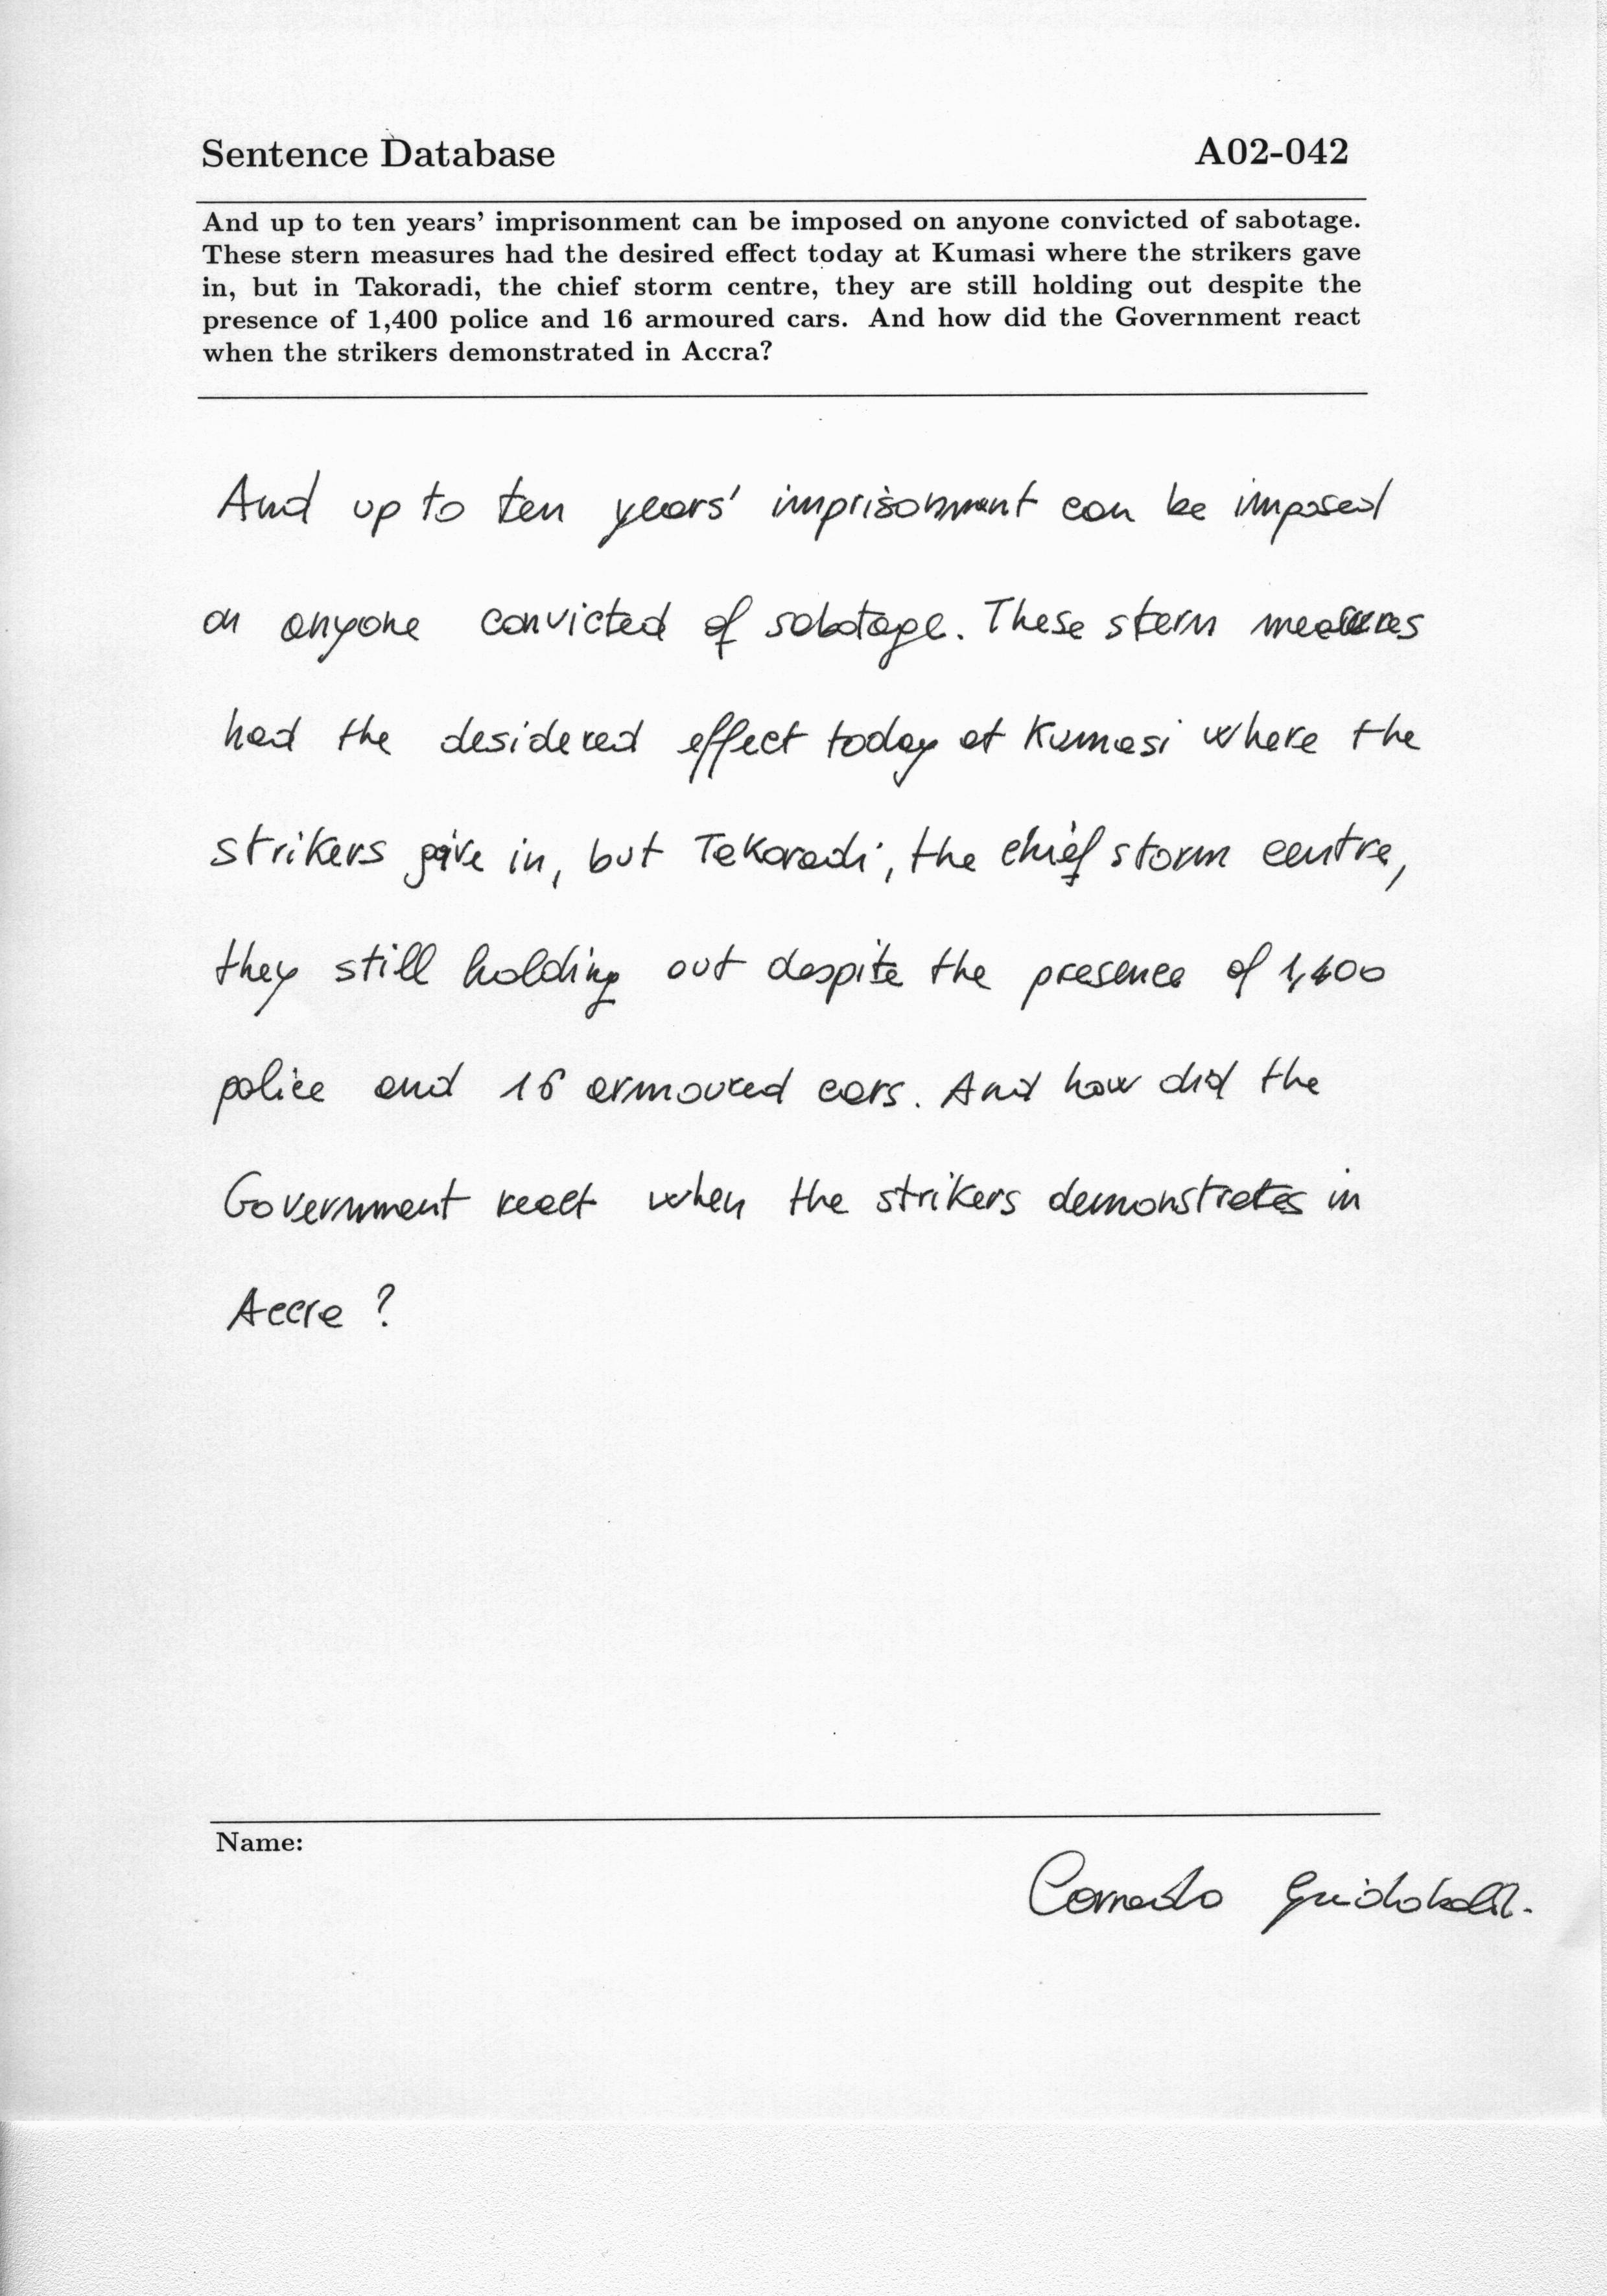 Sentence Database A02-042
And up to ten years' imprisonment can be imposed on anyone convicted of sabotage.
These stern measures had the desired effect today at Kumasi where the strikers gave
in, but in Takoradi, the chief storm centre, they are still holding out despite the
presence of 1,400 police and 16 armoured cars. And how did the Government react
when the strikers demonstrated in Accra?
And up to ten years' imprisonment can be imposed
on anyone convicted of sabotage. These stern measures
had the desidered effect today at Kumasi where the
strikers give in, but Takoradi, the chief storm centre,
they still holding out despite the presence of 1,400
police and 16 armoured cars. And how did the
Government react when the strikers demonstrates in
Accra ?
Name:
Corrado